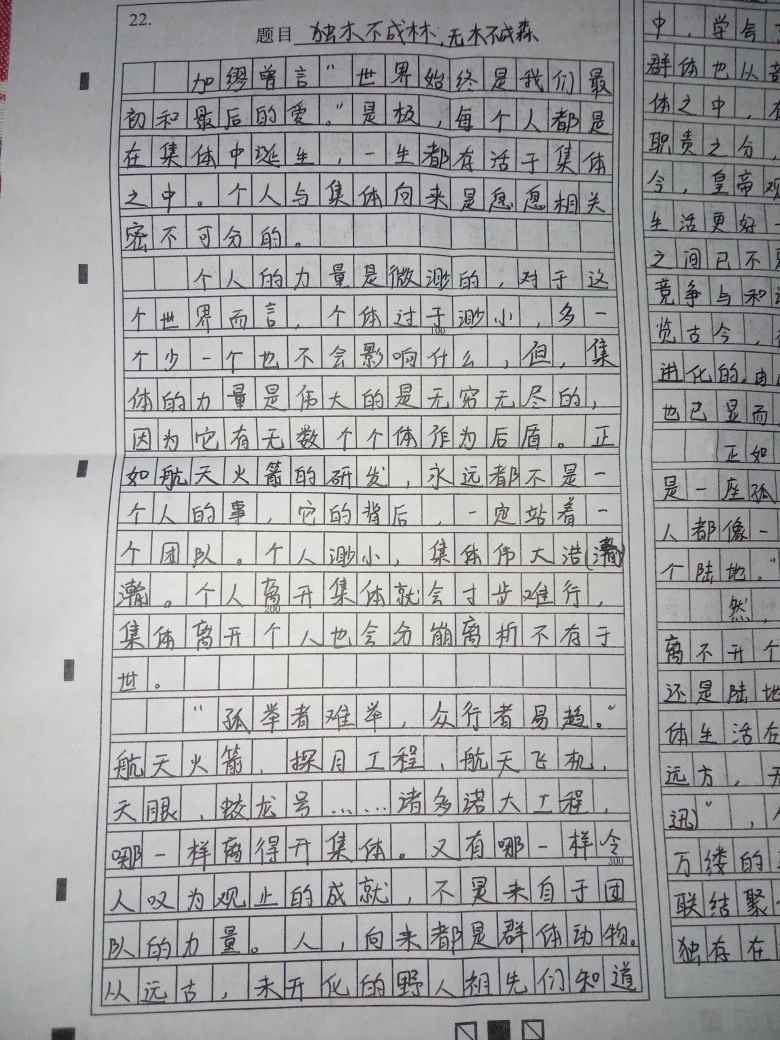 22.
题目 独木不成林,无木不成森
加缪曾言“世界始终是我们最
初和最后的爱。”是极,每个人都是
在集体中诞生,一生都存活于集体
之中。个人与集体向来是息息相关
密不可分的。
个人的力量是微渺的,对于这
个世界而言,个体过于渺小,多一
100
个少一个也不会影响什么,但,集
体的力量是伟大的是无穷无尽的,
因为它有无数个个体作为后盾。正
如航天火箭的研发,永远都不是一
个人的事,它的背后,一定站着一
个团队。个人渺小,集体伟大浩(瀚)
瀚。个人离开集体就会寸步难行,
200
集体离开个人也会分崩离析不存于
世。
“孤举者难举,众行者易趋。”
航天火箭,探月工程,航天飞机,
天眼,蛟龙号……诸多诺大工程,
哪一样离得开集体。又有哪一样令
300
人叹为观止的成就,不是来自于团
队的力量。人,向来都是群体动物。
从远古,未开化的野人祖先们知道
中,学会
群体也从
体之中,
职责之分,
今,皇帝观
生活更好一
之间已不
竞争与和
览古今,
进化的,由
也已显而
正如
是一座孤
人都像一
个陆地。”
然,
离不开个
还是陆地
体生活在
远方,无
迅)”,
万缕的
联结聚
独存在